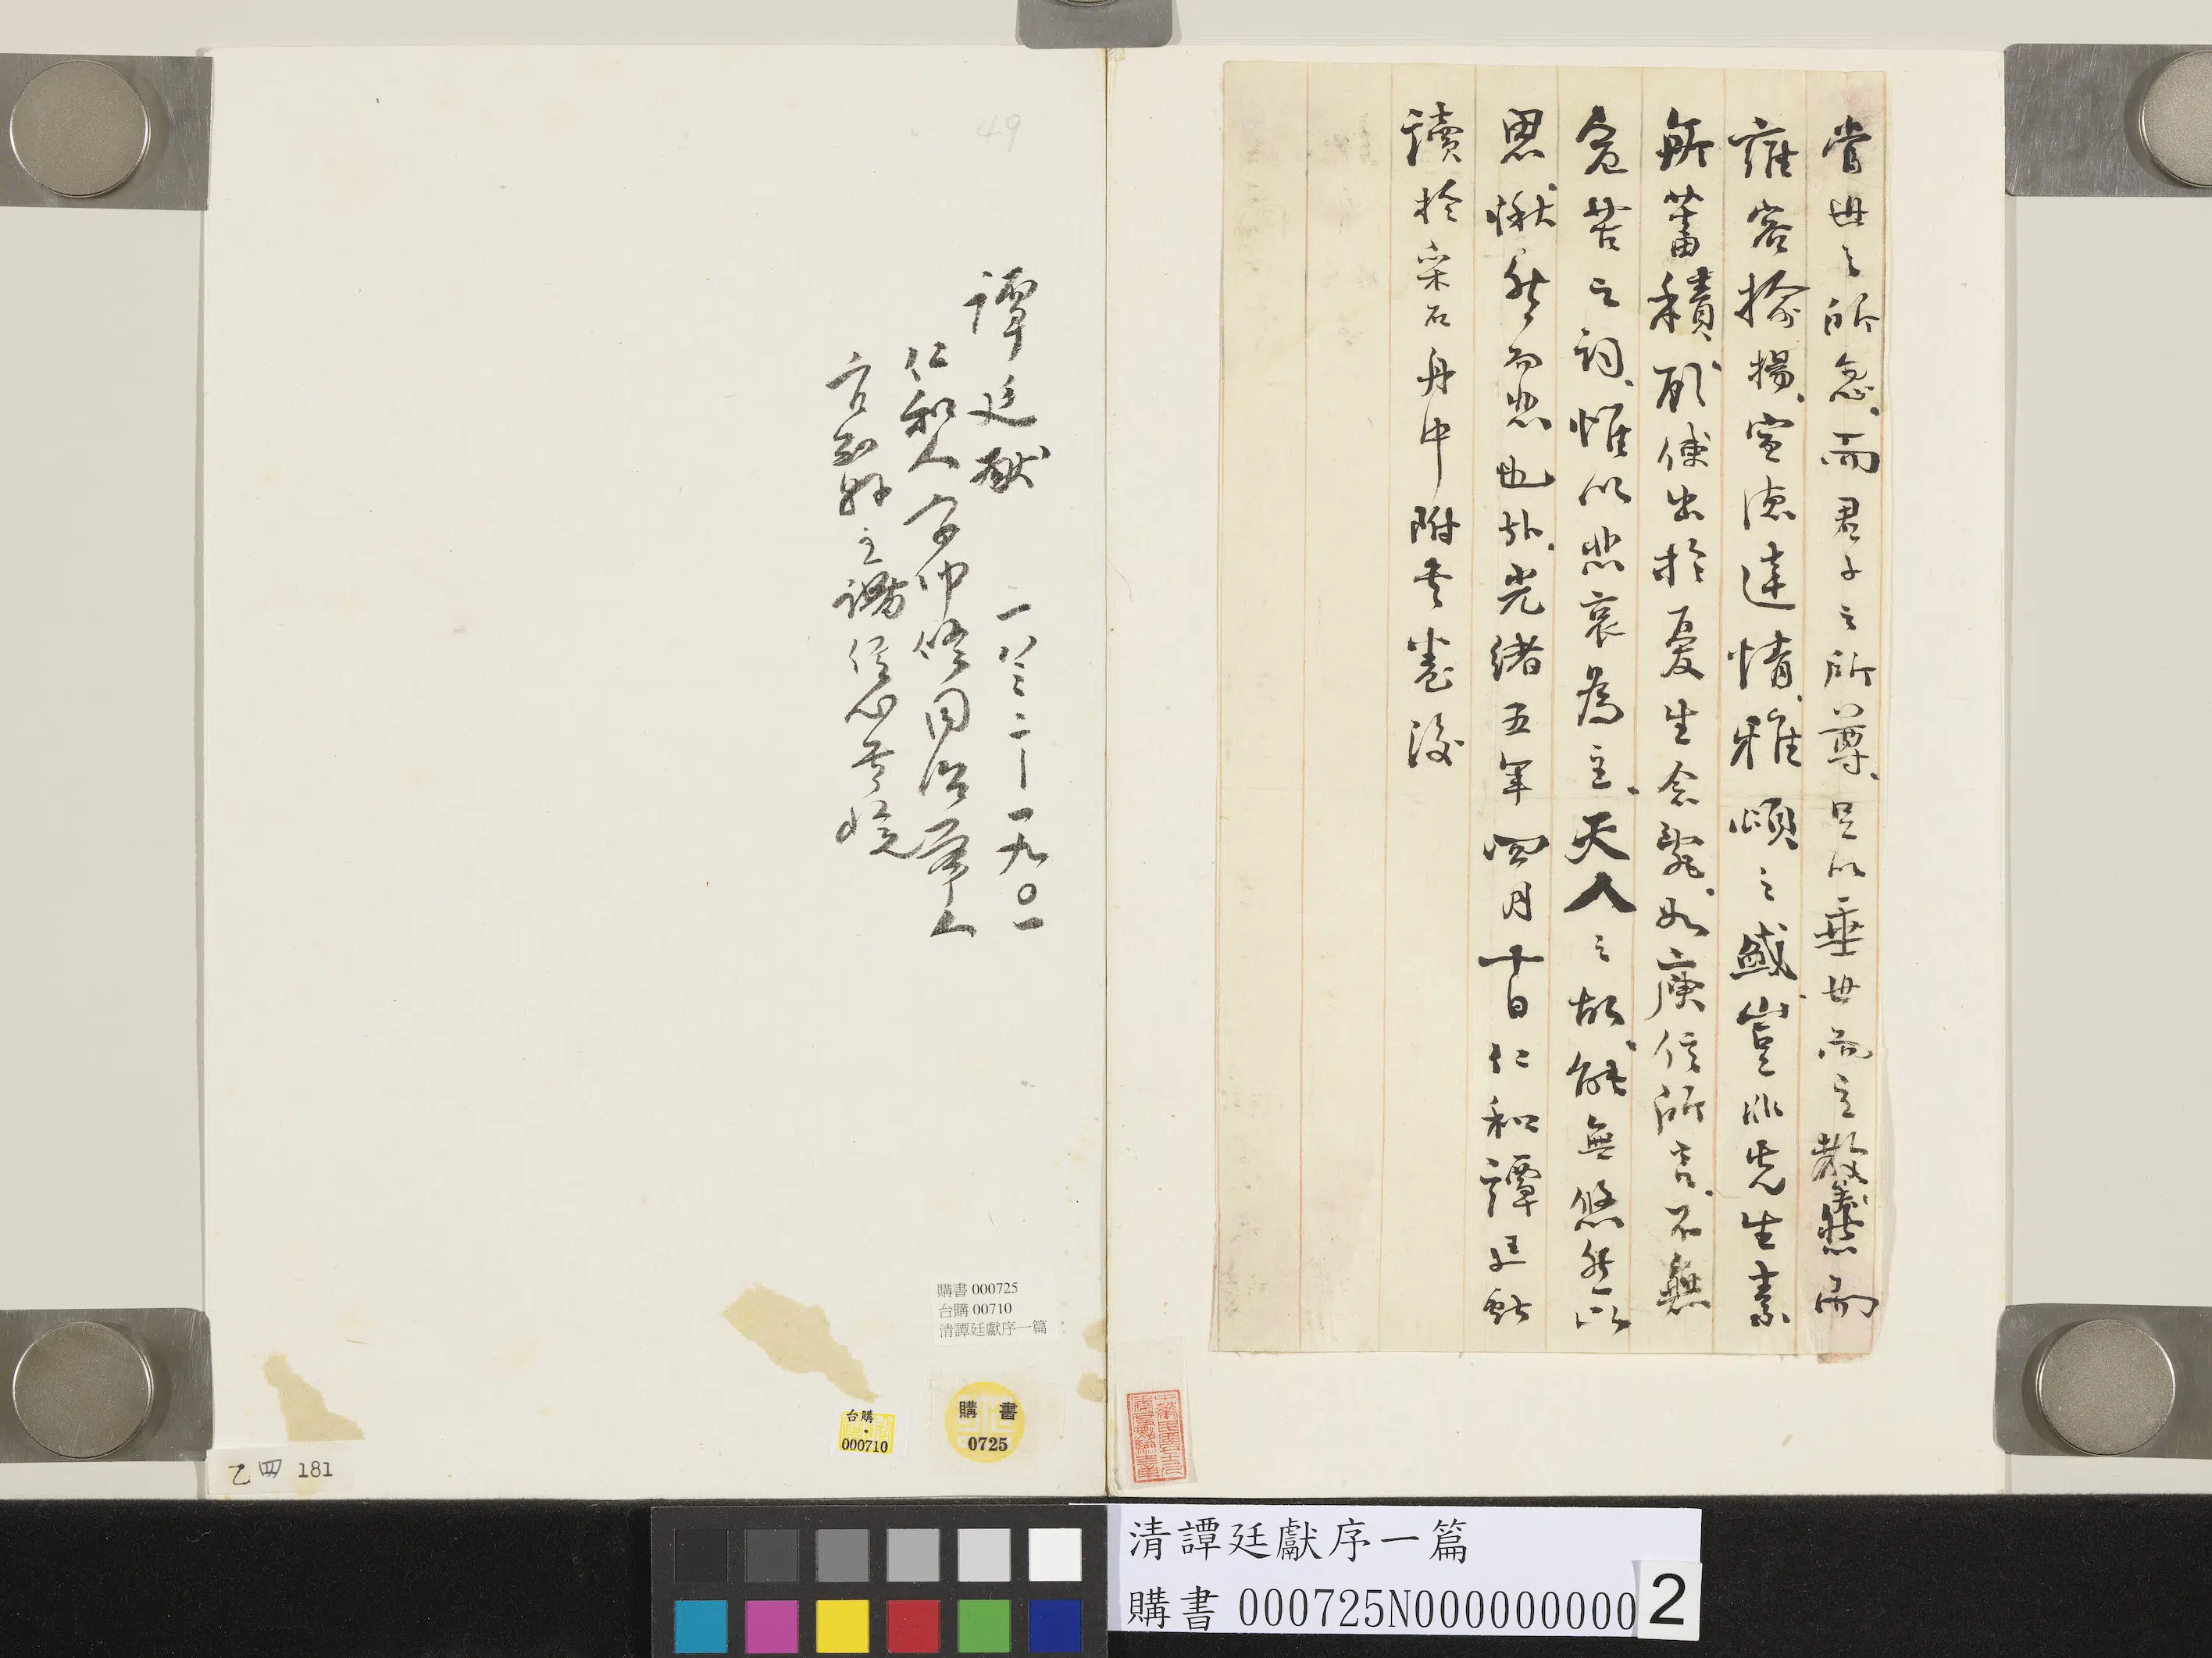 當世之所急而君子之所尊足以垂世而立教義然而
雍容揄揚宣德達情雅頌之鹹豈非先生素
所蓄積願僅出於憂生念亂如庾信所言不無
危苦之詞惟以悲哀為主天人之故能無悠然以
思愀然而悲也哉光緒五年四月十日仁和譚廷獻
讀於采石舟中附書卷後
49
譚廷獻 一八三二—一九〇一
仁和人字仲修同治舉人
官知縣
購書 000725
台購 00710
清譚廷獻序一篇
購書
0725
台購
000710
乙四 181
清譚廷獻序一篇
購書 000725N000000000
2